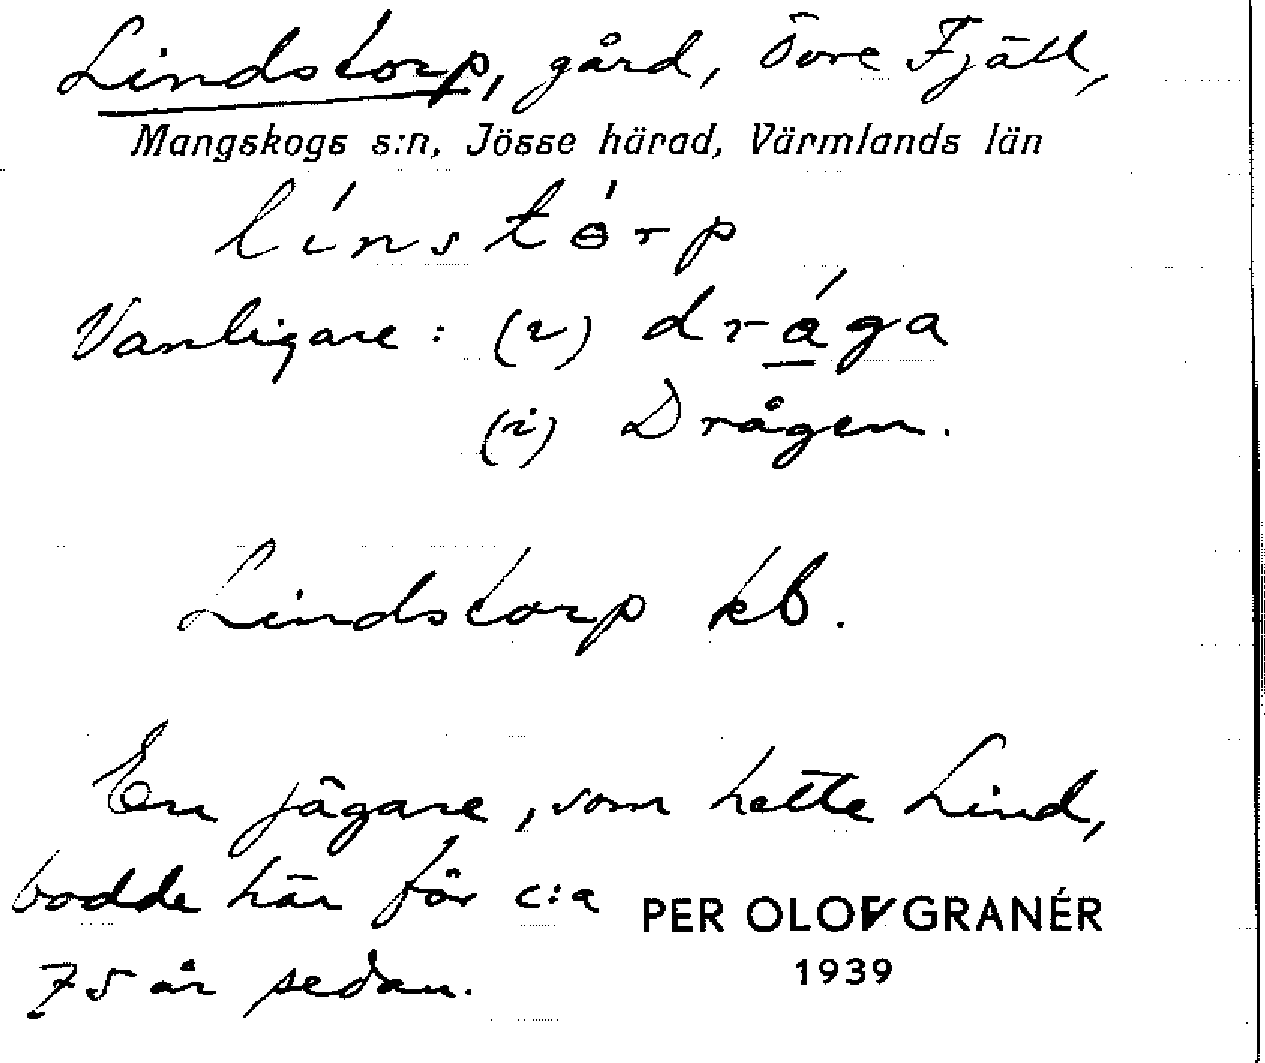 Lindstorp, gård, Övre Fjäll,
Mangskogs s:n, Jösse härad, Värmlands län
línstórp
Vanligare: (i) drága
(i) Drågen.
Lindstorp kb.
En jägare, som hette Lind,
bodde här för c:a
75 år sedan.
PER OLOF GRANÉR
1939